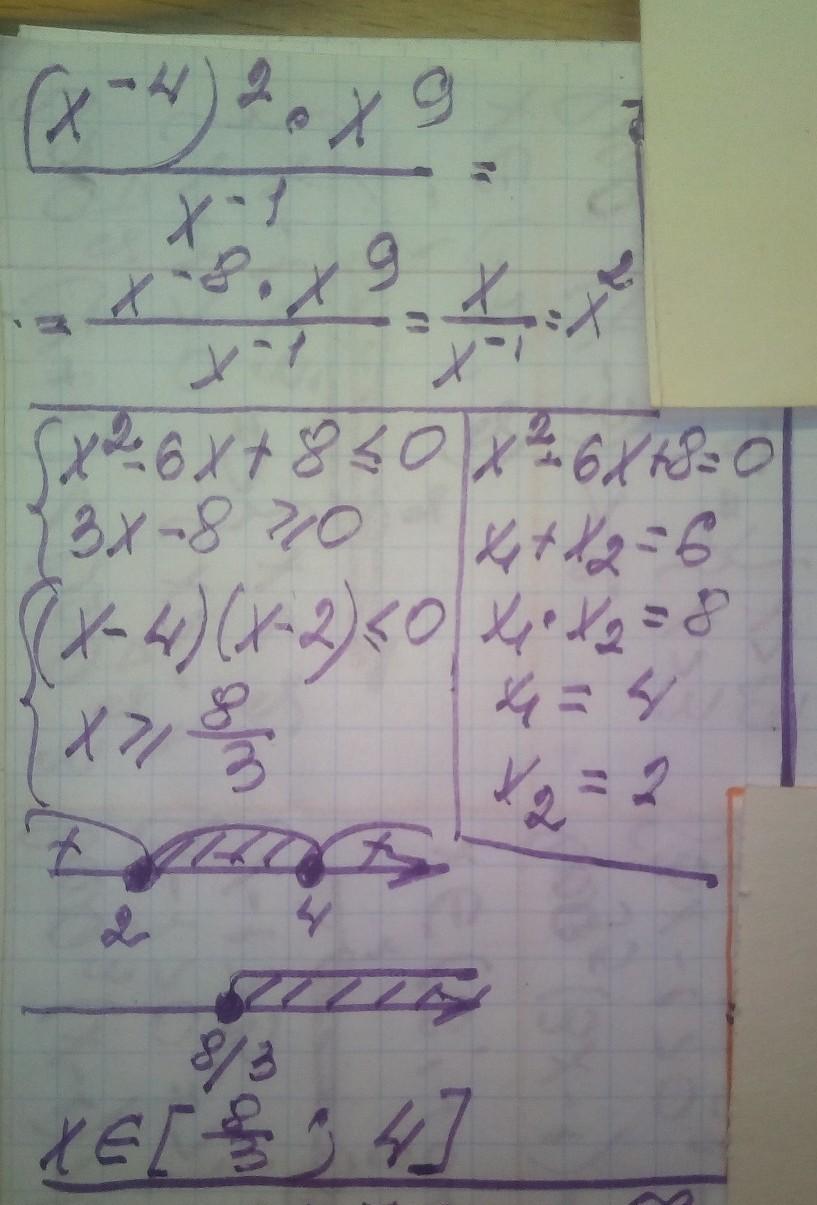 (x^-4)^2 · x^9 / x^-1 =
= x^-8 · x^9 / x^-1 = x / x^-1 = x^2
{ x^2 - 6x + 8 ≤ 0
3x - 8 ≥ 0
{ (x - 4)(x - 2) ≤ 0
x ≥ 8/3
x^2 - 6x + 8 = 0
x₁ + x₂ = 6
x₁ · x₂ = 8
x₁ = 4
x₂ = 2
+ - +
2 4
8/3
x ∈ [8/3 ; 4]